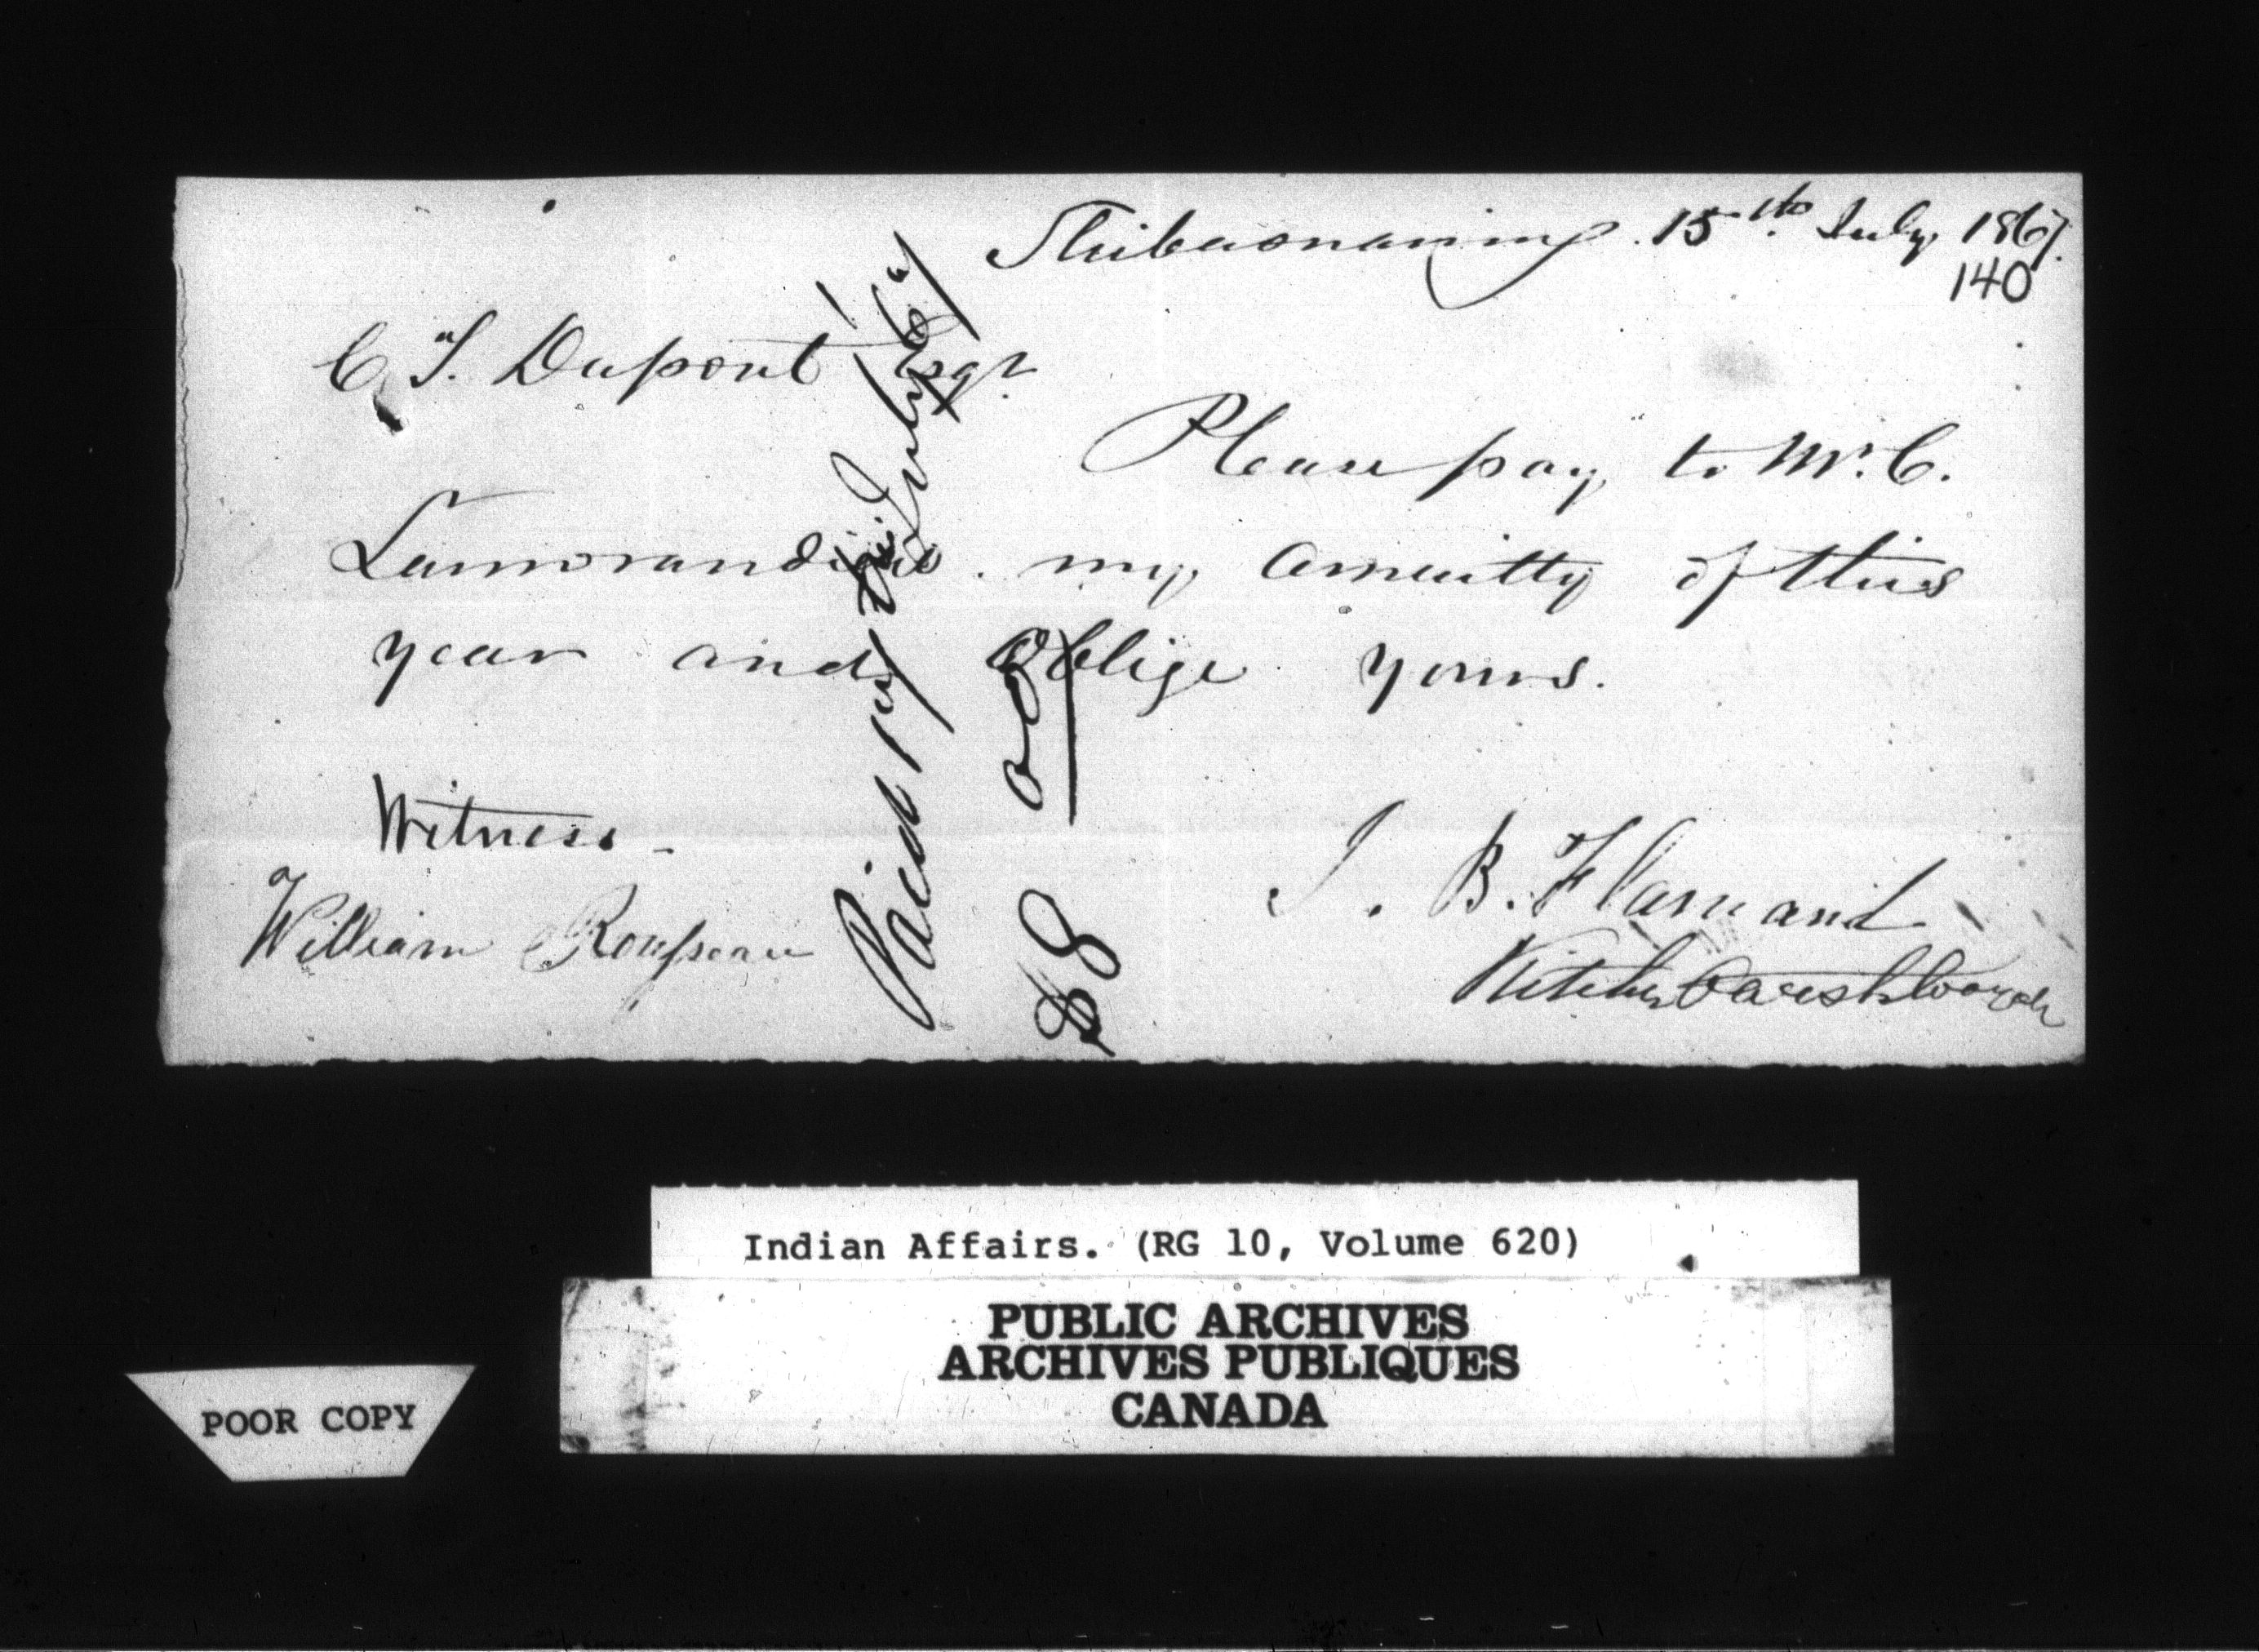 Shibaonaning. 15th. July, 1867.
140
C. T. Dupont Esqr.
Please pay, to Mr. C.
Lamorandiere. my, annuitty of this
year and oblige yours.
Witness -
William Rousseau
J. B. Flamand
Paid pr July 67
$8
Indian Affairs. (RG 10, Volume 620)
PUBLIC ARCHIVES
ARCHIVES PUBLIQUES
CANADA
POOR COPY